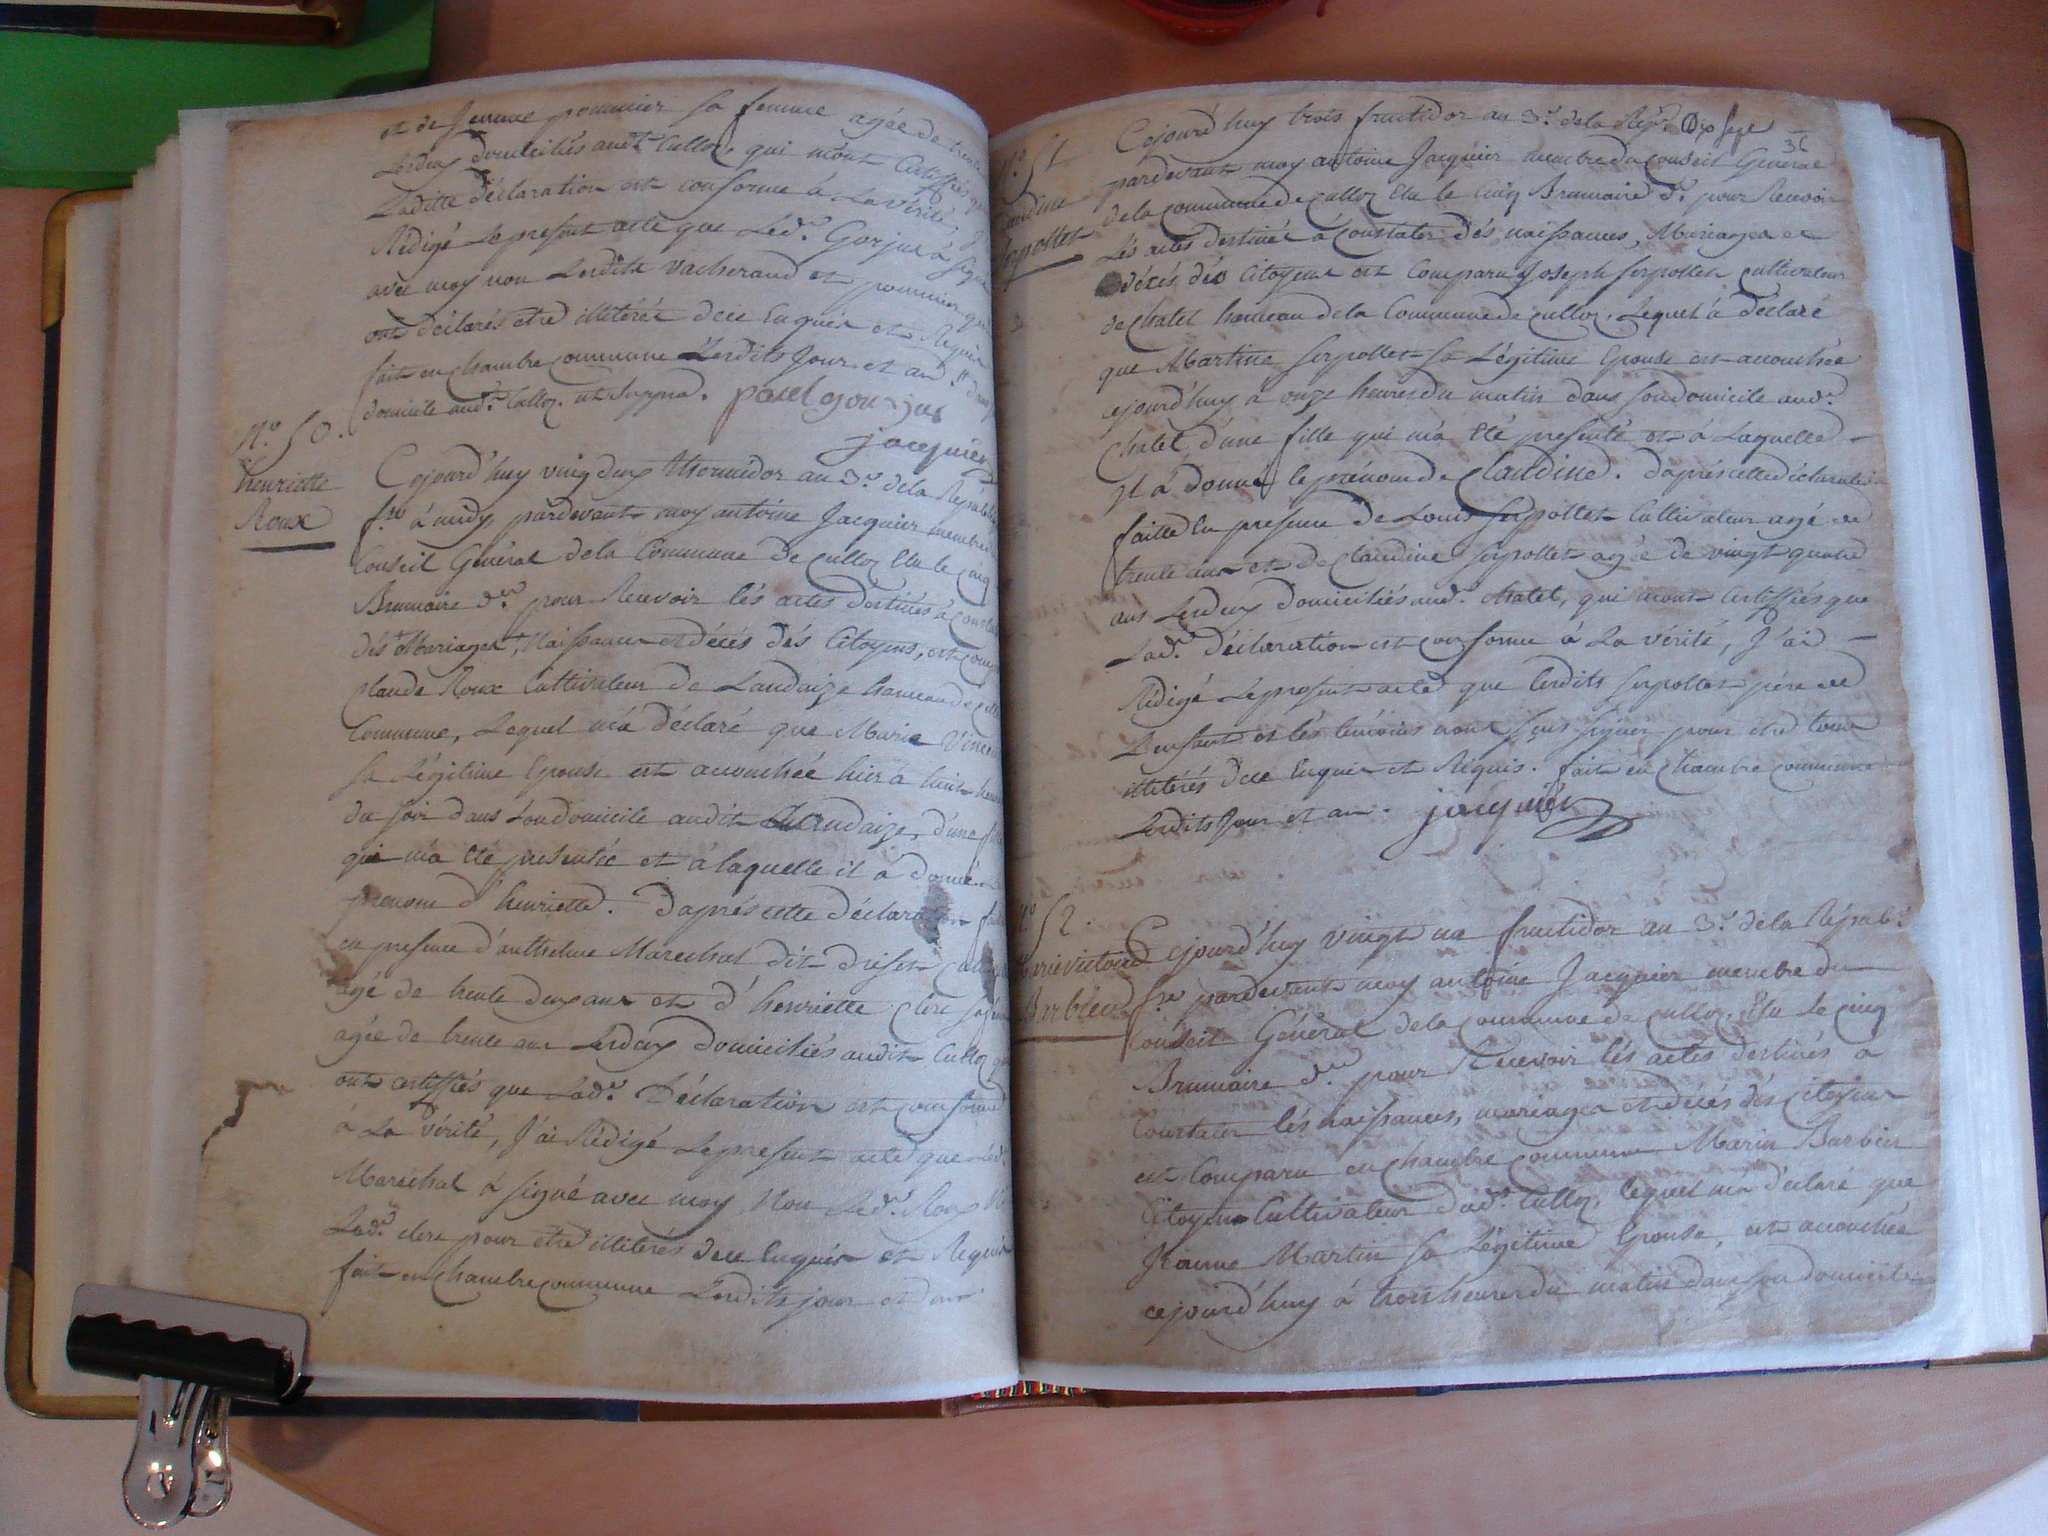 et de Jeanne pommier sa femme agée de trente
Lesdeux domiciliés audt. Culloz, qui m'ont Certiffié q
Laditte déclaration est conforme à La vérité, j
Rédigé Le present acte que Led.t Gorjux à signé
avec moy non Lesdits vacherand et pommier qui
ont déclarés etre illitérés dece Enquis et Requis
fait en Chambre commune Lesdits Jour et an
domicile aud.t Culloz. et Suzpra. patel gorjus
jacquier
N.o 50.
henriette
Roux
Cejourd'huy vingt deux thermidor an 3.e dela Républi
f.se à midy pardevant moy antoine Jacquier membre
Conseil Général dela Commune De Culloz Elu le cinq
Brumaire d.er pour Recevoir lés actes destinés à Const
dés Mariages, Naissances et décés dés Citoyens, est comp
Claude Roux Cultivateur de Landaize hameau de
Commune, Lequel m'a déclaré que Marie Vincen
sa Légitime Epouse est accouchée hier à huit heur
du soir dans Son domicile audit Landaize, d'une fi
qui m'a été presentée et à laquelle il à donné
prenom d'henriette. D'aprés cette déclaration fai
en presence d'anthelme Marechal dit driset Cult
agé de trente deux ans et d'henriette Clerc sa fem
agée de trente ans Lesdeux domiciliés audit Culloz q
ont certiffiés que Lad.te Déclaration est conforme
à La vérité, J'ai Rédigé Le present acte que Led.
Marechal à signé avec moy Non Led.t Roux ni
Lad.te clerc pour etre illitérés dece Enquis et Requis
fait en Chambre commune Lesdits jour et an.
36
N.o 51
Claudine
Serpollet
Cejourd'huy trois fructidor an 3.e dela Rép.e
pardevant moy antoine Jacquier membre du Conseil Général
dela Commune de Culloz Elu le Cinq Brumaire d.r pour Recevoir
Lés actes destinés à Constater dés naissances, Mariages et
décés dés Citoyens est Comparu Joseph Serpollet Cultivateur
de Chatel hameau dela Commune de Culloz, Lequel à déclaré
que Martine Serpollet sa Légitime Epouse est accouchée
cejourd'huy à onze heures du matin dans son domicile aud.t
Chatel, d'une fille qui m'a Eté presenté et à Laquelle
Il à donné le prénom de Claudine. D'aprés cette déclaration
faitte En presence De Louis Serpollet Cultivateur agé de
trente ans et de Claudine Serpollet agée de vingt quatre
ans Lesdeux domiciliés aud.t Chatel, qui m'ont Certiffiés que
Lad.te déclaration est conforme à La vérité, J'ai
Rédigé Le present acte que Lesdits Serpollet pére de
L'enfant et lés témoins n'ont sçus signer pour etre tous
illitérés dece Enquis et Réquis. fait en Chambre commune
Lesdits Jour et an. jacquier
N.o 52.
Marie victoire
Barbier
Cejourd'huy vingt un fructidor an 3.e dela Républ.e
f.se pardevant moy antoine Jacquier membre du
Conseil Général dela commune de Culloz, Elu le Cinq
Brumaire d.er pour Recevoir lés actes destinés à
Constater lés naissances, mariages et décés dés Citoyens
est Comparu en Chambre Commune Marin Barbier
Citoyen Cultivateur dud.t Culloz, lequel m'a déclaré que
Jeanne Martin sa Légitime Epouse, est accouchée
cejourd'huy à trois heures du matin dans son domicile